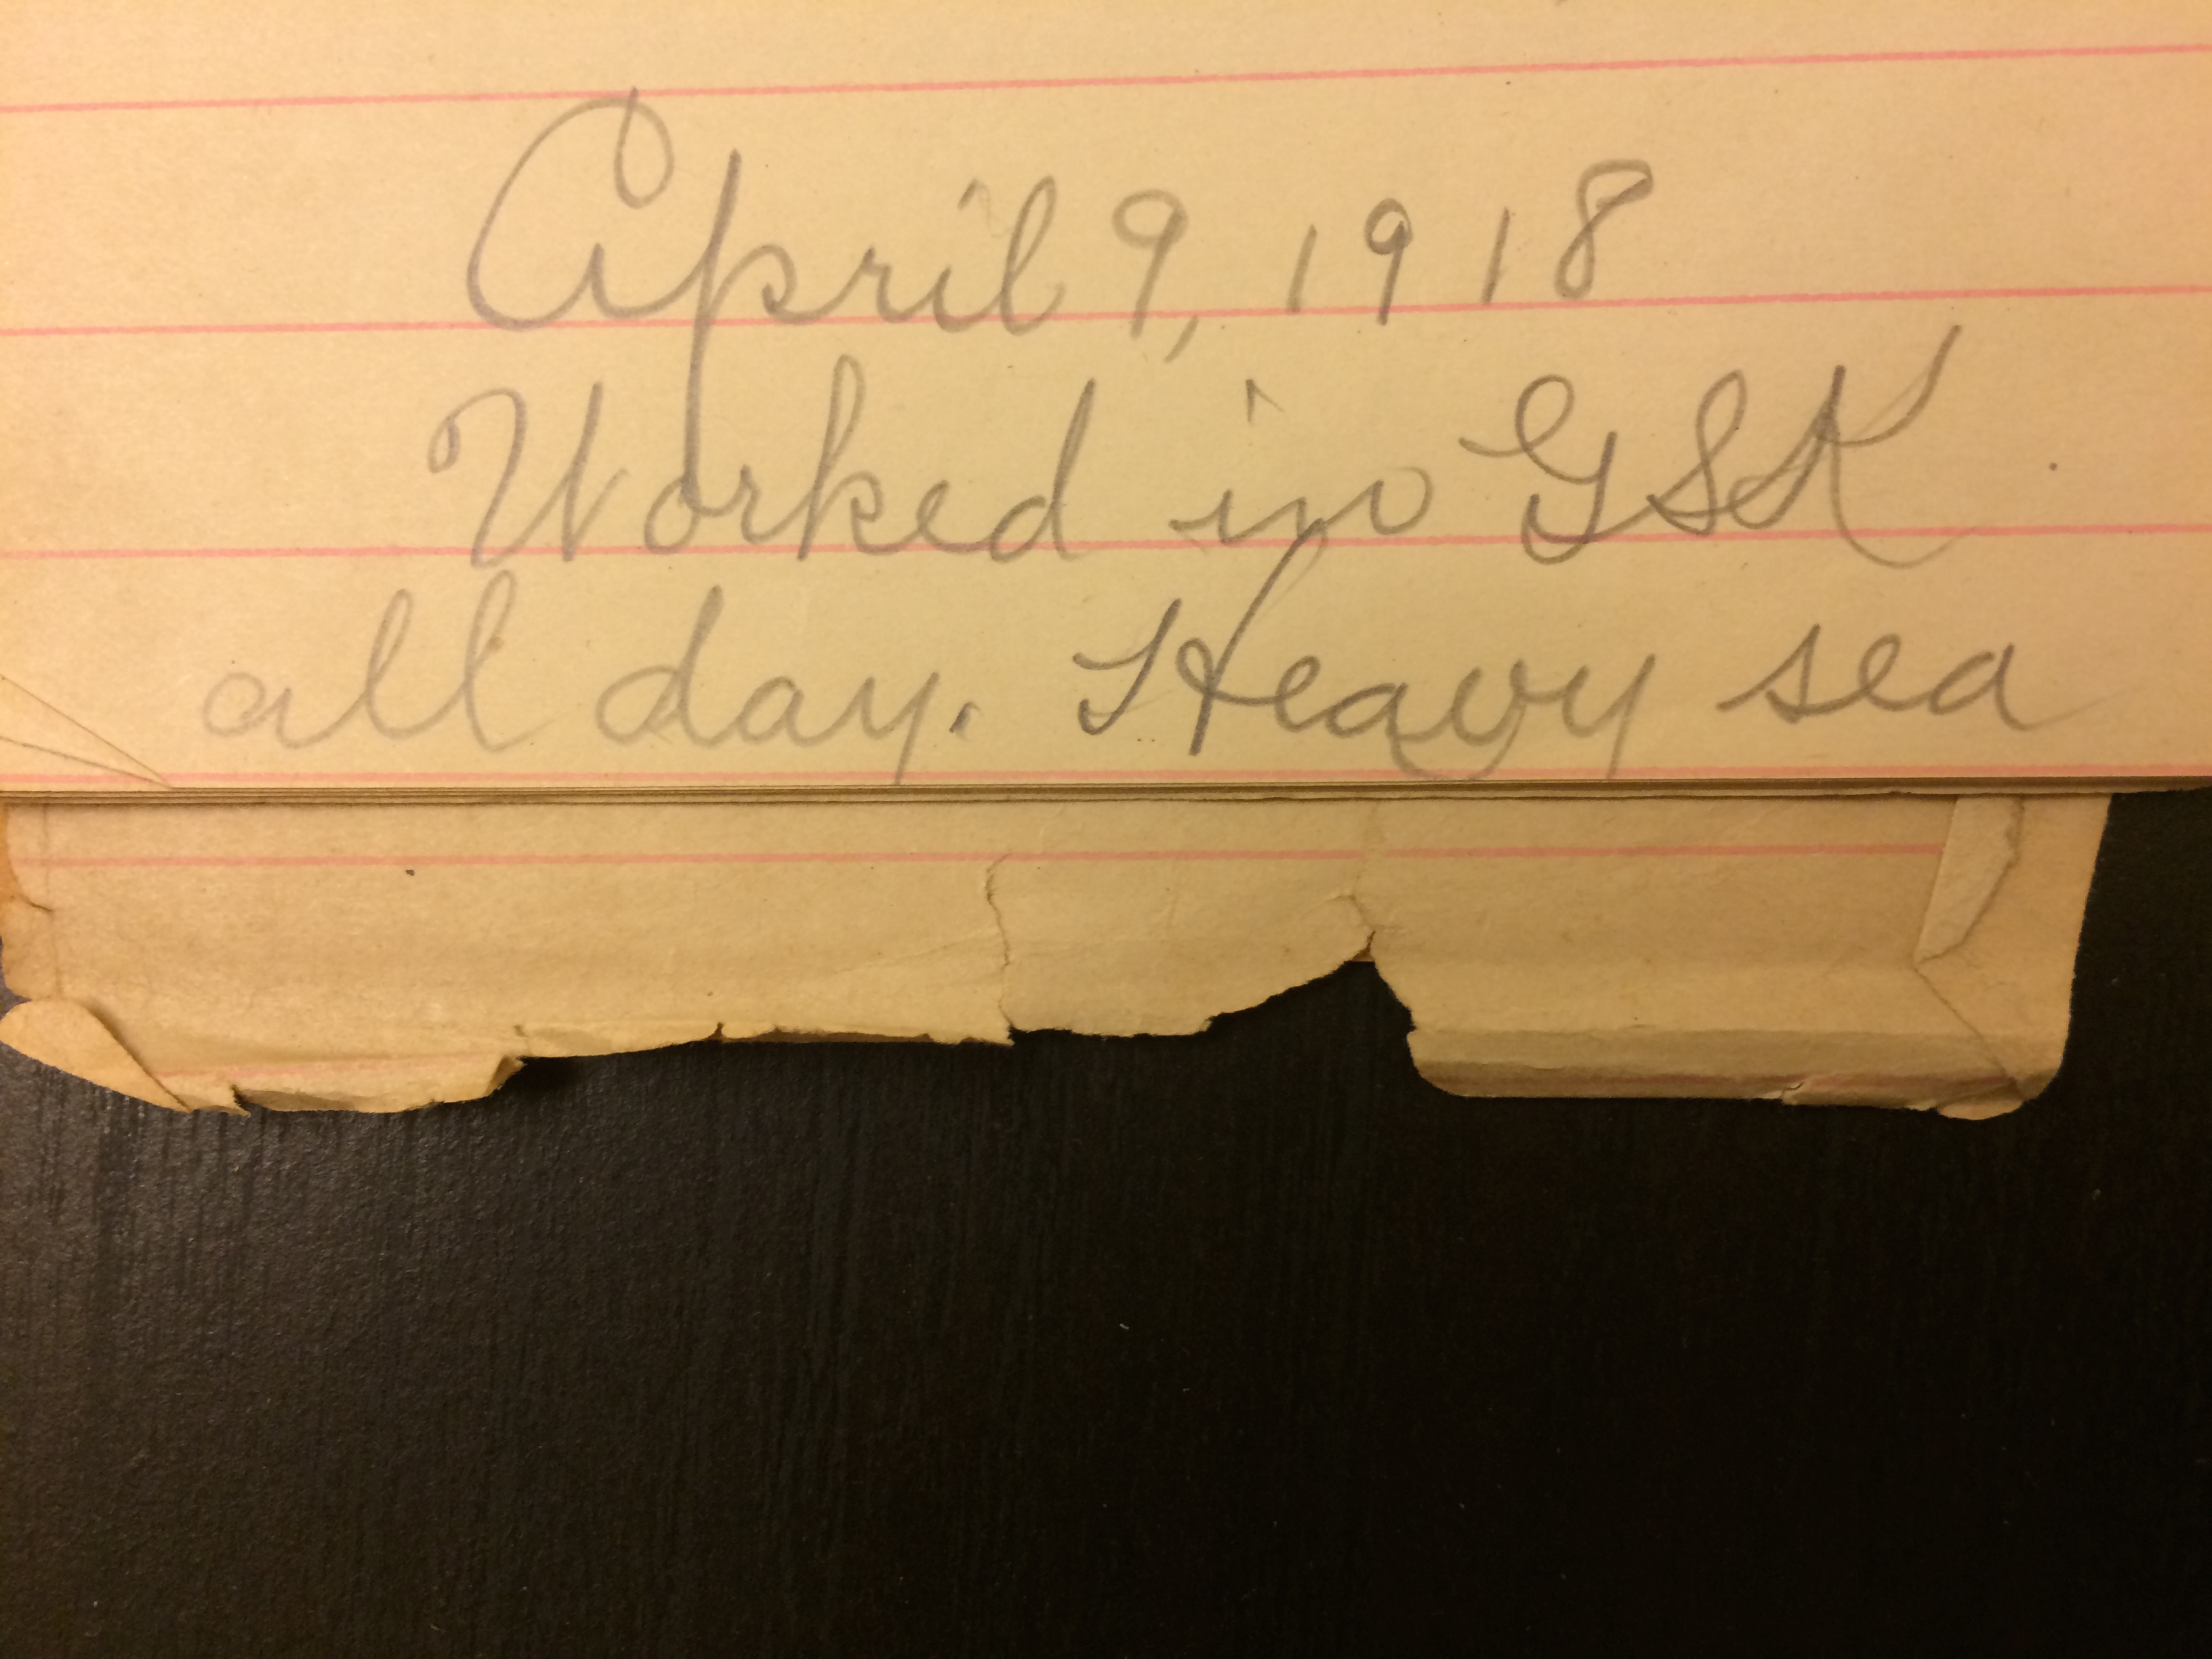 April 9, 1918
Worked in GSK
all day. Heavy sea